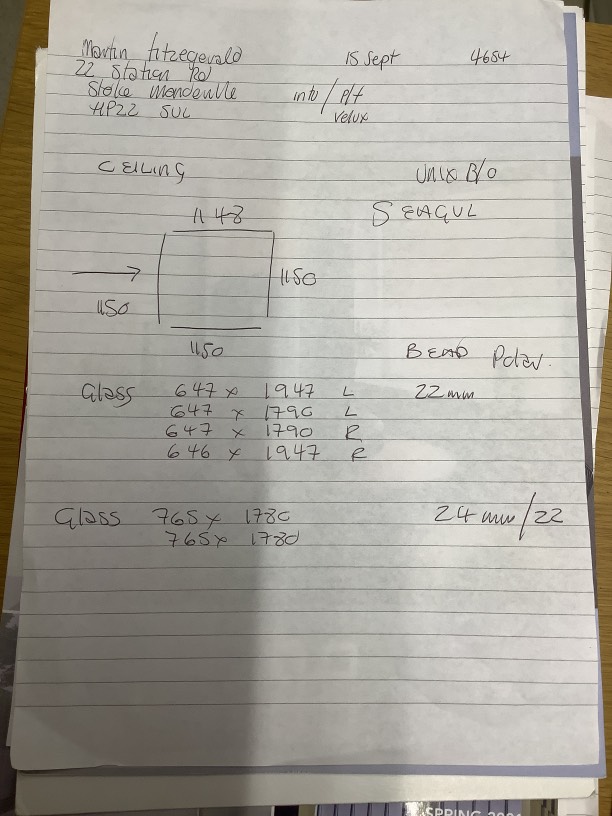 Martin Fitzgerald 15 Sept 4654
22 Station Rd
Stoke Mandeville into / p/f
HP22 5UL velux
CEILING UNIX B/O
1148 SEAGUL
1150
1150
1150
BEAD Polar.
Glass 647 x 1947 L 22mm
647 x 1790 L
647 x 1790 R
646 x 1947 R
Glass 765 x 1780 24mm/22
765 x 1780
SPRING